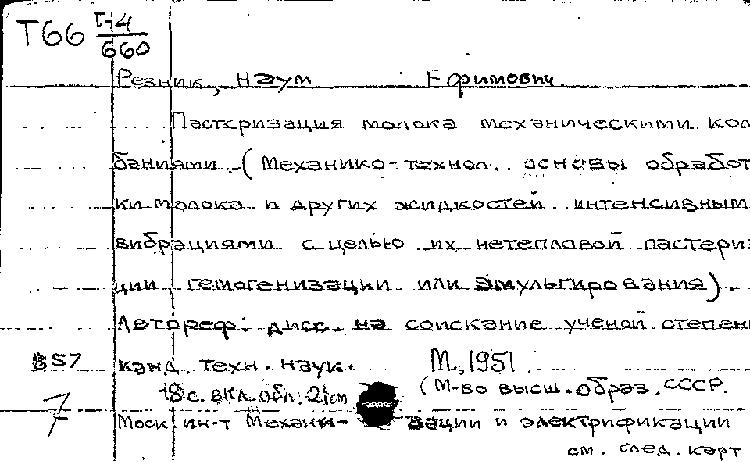 Т66 Г-4
660
Резник, Наум Ефимович
Пастеризация молока механическими кол
баниями (Механико-технол. основы обработ
ки молока и других жидкостей интенсивным
вибрациями с целью их нетепловой пастериз
ции гемогенизации или эмульгирования).
Автореф. дисс. на соискание ученой степен
857 канд. техн. наук. М., 1951
18 с. вкл. обл. 21 см (М-во высш. образ. СССР.
7 Моск ин-т Механи- зации и электрификации
см. след. карт